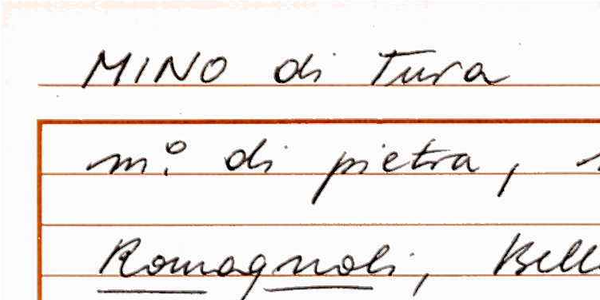 MINO di Tura
m.º di pietra,
Romagnoli,